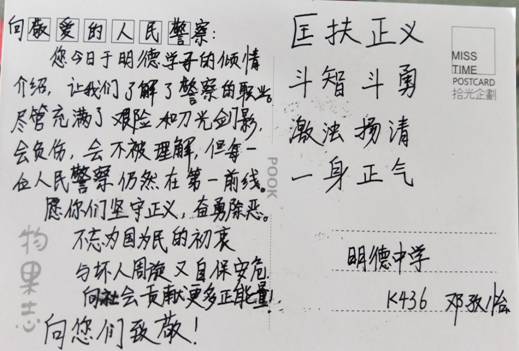 向敬爱的人民警察：
您今日于明德学子的倾情
介绍，让我们了解了警察的职业。
尽管充满了艰险和刀光剑影，
会负伤，会不被理解，但每一
位人民警察仍然在第一前线。
愿你们坚守正义，奋勇除恶。
不忘为国为民的初衷
与坏人周旋又自保安危
向社会贡献更多正能量！
向您们致敬！
物果志
POOK
匡扶正义
斗智斗勇
激浊扬清
一身正气
MISS
TIME
POSTCARD
拾光企劃
明德中学
K436 邓孜怡